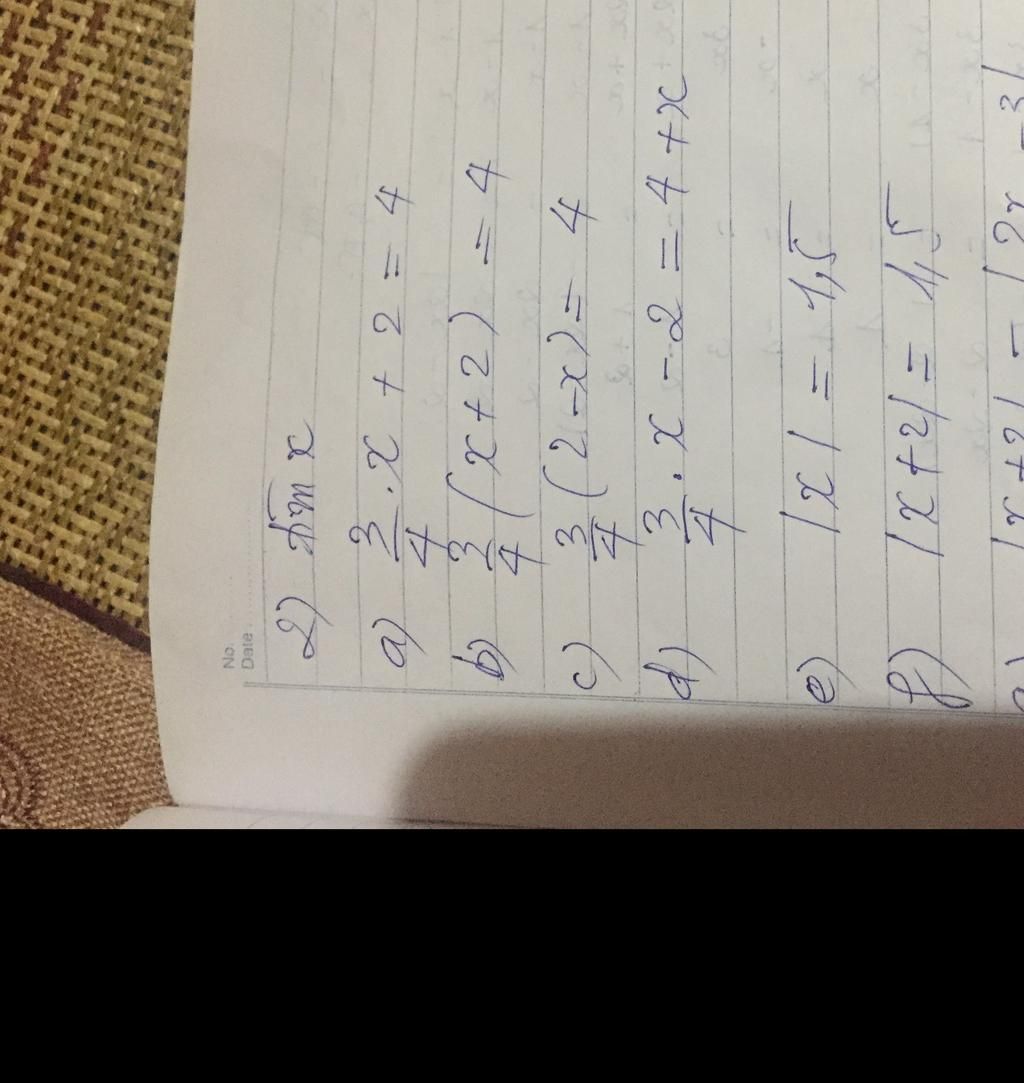 No.
Date
2) Tìm x
a) 3/4 . x + 2 = 4
b) 3/4 (x + 2) = 4
c) 3/4 (2 - x) = 4
d) 3/4 . x - 2 = 4 + x
e) |x| = 1,5
f) |x + 2| = 1,5
|x + 2| = |2x - 3|